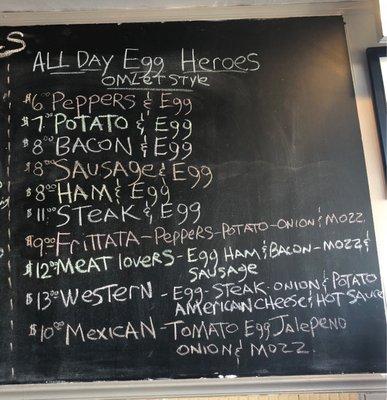 ALL DAY Egg Heroes
OMLet STyle
$6⁰⁰ Peppers & Egg
$7⁰⁰ POTATO & Egg
$8⁰⁰ BACON & Egg
$8⁰⁰ SAUSAge & Egg
$8⁰⁰ HAM & Egg
$11⁰⁰ STeak & Egg
$9⁰⁰ FriTTATA - Peppers - POTATO - ONION & MOZZ.
$12⁰⁰ MeAT lovers - Egg HAM & BACON - MOZZ &
SAUSAge
$13⁰⁰ Western - Egg - STeak - ONION & POTATO
AMerICAN CHeese & HOT SAUCe
$10⁰⁰ MexICAN - TOMATO Egg JAlepeNO
ONION & MOZZ.